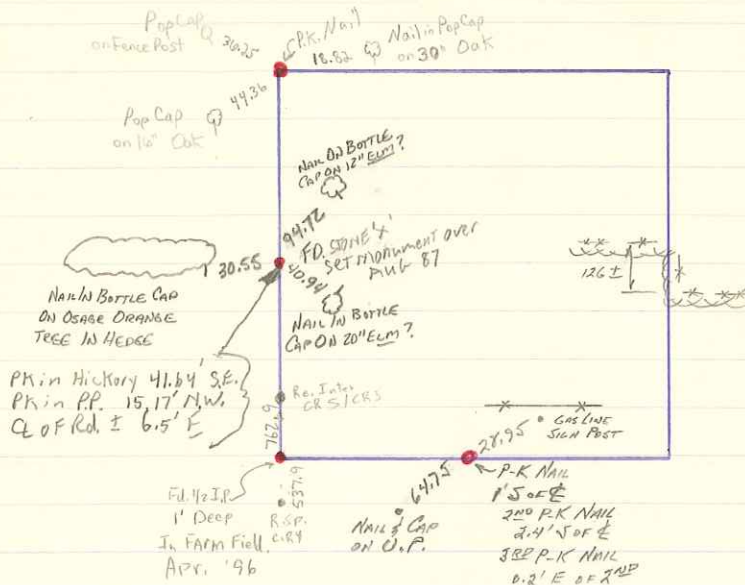 Pop Cap
on Fence Post
36.25
P.K. Nail
18.82
Nail in Pop Cap
on 30" Oak
44.36
Pop Cap
on 16" Oak
NAIL ON BOTTLE
CAP ON 12" ELM?
94.72
FD. STONE "X"
SET MONUMENT OVER
AUG 87
30.55
40.94
126 ±
NAIL IN BOTTLE CAP
ON OSAGE ORANGE
TREE IN HEDGE
NAIL IN BOTTLE
CAP ON 20" ELM?
PK in Hickory 41.64' S.E.
PK in P.P. 15.17' N.W.
CL OF Rd. ± 6.5' E
Re. Inter
CR5/CR3
792.9
28.95
GAS LINE
SIGN POST
64.75
P-K NAIL
1' S OF CL
2ND P-K NAIL
2.4' S OF CL
3RD P-K NAIL
0.2' E OF 2ND
Fd. 1/2 I.P.
1' Deep
In Farm Field
Apr. '96
537.9
R.S.P.
NAIL & CAP
ON U.P.